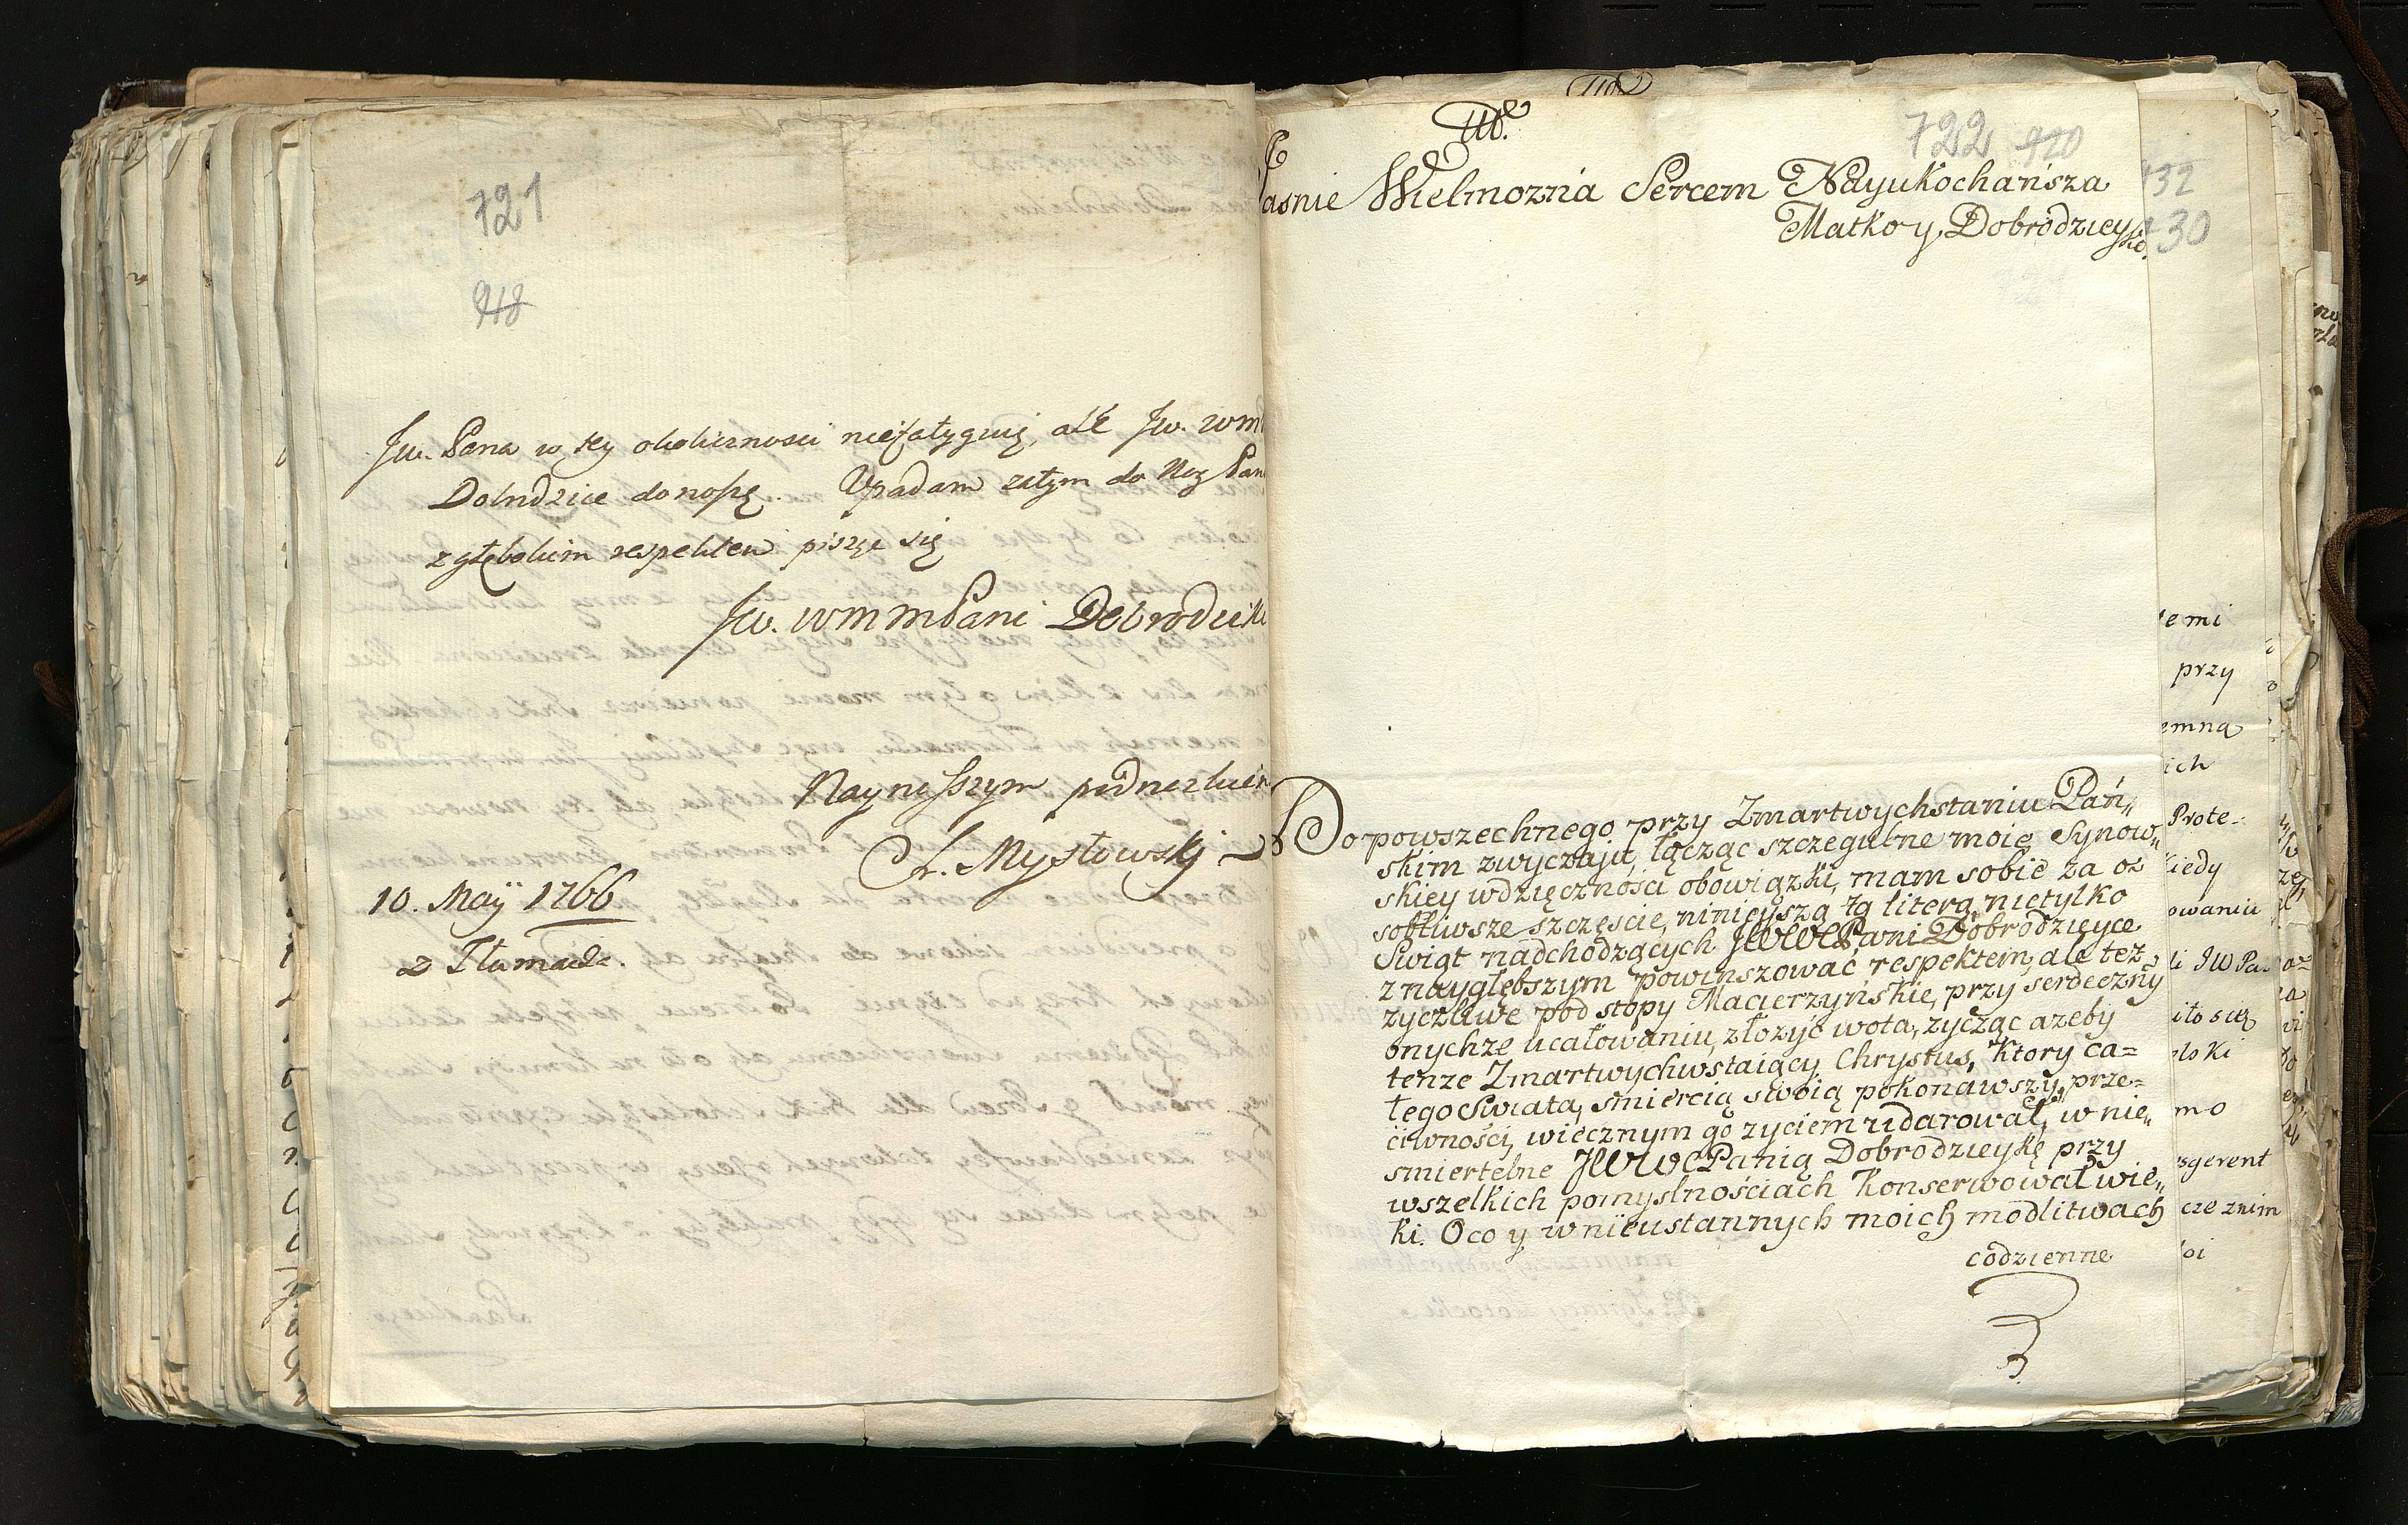 721
918
Jw. Pana w tey okolicznosci niefatyguię, ale Jw. wm
Dobrdzice donoszę. Upadam zatym do Nog Pan
z głębokim respektem piszę się
Jw. wmmPani Dobrodziki
Nayniszszym podnozkiem
Mysłowskj
10. Maÿ 1766
z Tłumacza.
722 920
Jasnie Wielmozna Sercem Nayukochańsza
Matko y Dobrodzieyko.
Do powszechnego przy Zmartwychstaniu Pań„
skim zwyczaju, łącząc szczegulne moie Synow„
skiey wdzięczności obowiązki, mam sobie za o=
sobliwsze szczęście, ninieyszą tą literą nietylko
Swiąt nadchodzących JWWPani Dobrodzieyce
z naygłębszym powinszować respektem, ale też
zyczliwe pod stopy Macierzyńskie, przy serdeczny
onychze ucałowaniu, złozyć wota, zycząc azeby
tenze Zmartwychwstaiący Chrystus, Ktory ca=
łego Swiata, smiercią swoią pokonawszy prze=
ciwności, wiecznym go zyciem udarował, w nie„
smiertelne JWWPanią Dobrodzieykę przy
wszelkich pomyslnościach Konserwował wie„
ki. Oco y w nieustannych moich modlitwach
codzienne
132
430
emi
przy
emną
ich
Prote=
kiedy
owaniu
li JW Pa
ito się
lski
mo
sgerent
cze znim
oi